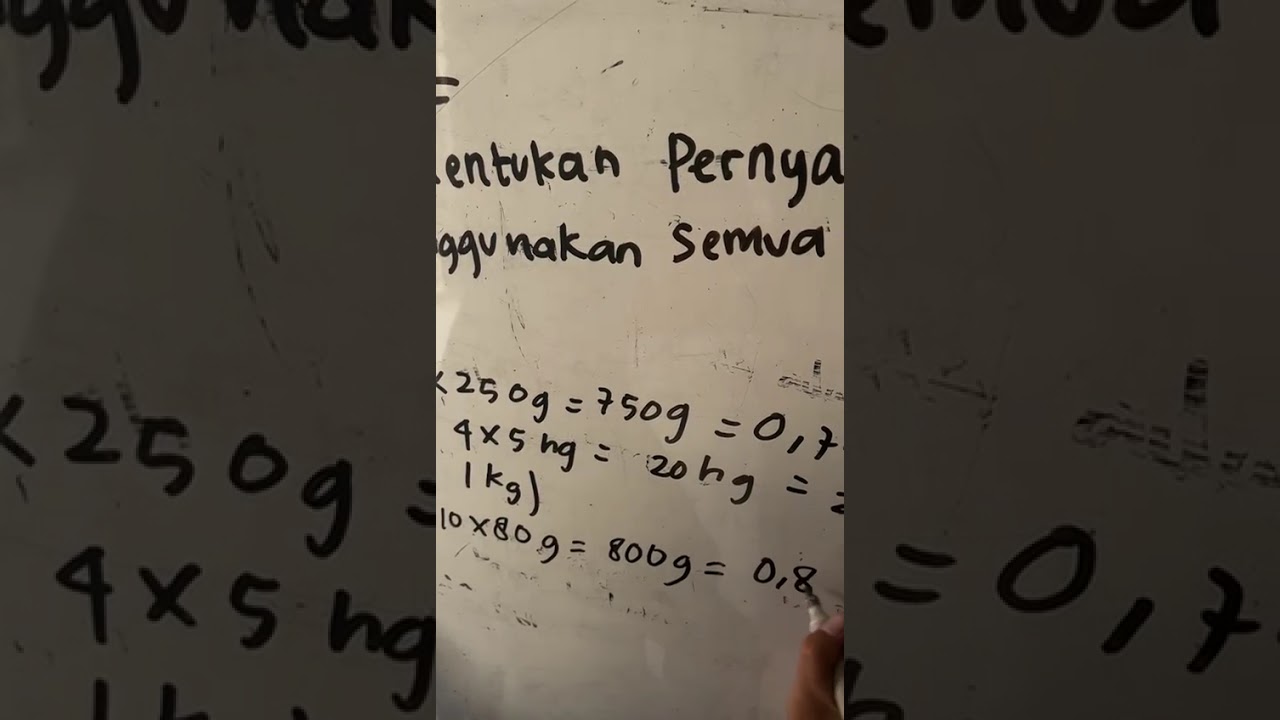 =
entukan Pernya
ggunakan semua
×250g = 750g = 0,7
4×5 hg = 20 hg = 2
1 kg)
10×80g = 800g = 0,8